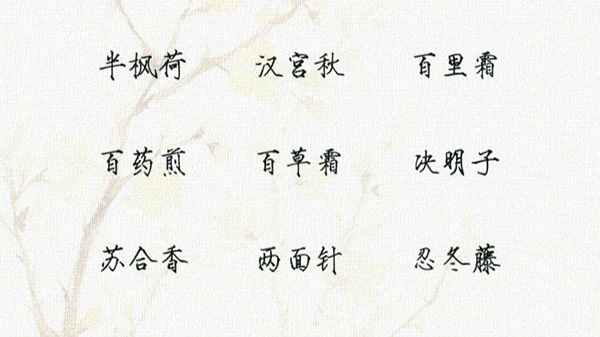 半枫荷 汉宫秋 百里霜
百药煎 百草霜 决明子
苏合香 两面针 忍冬藤